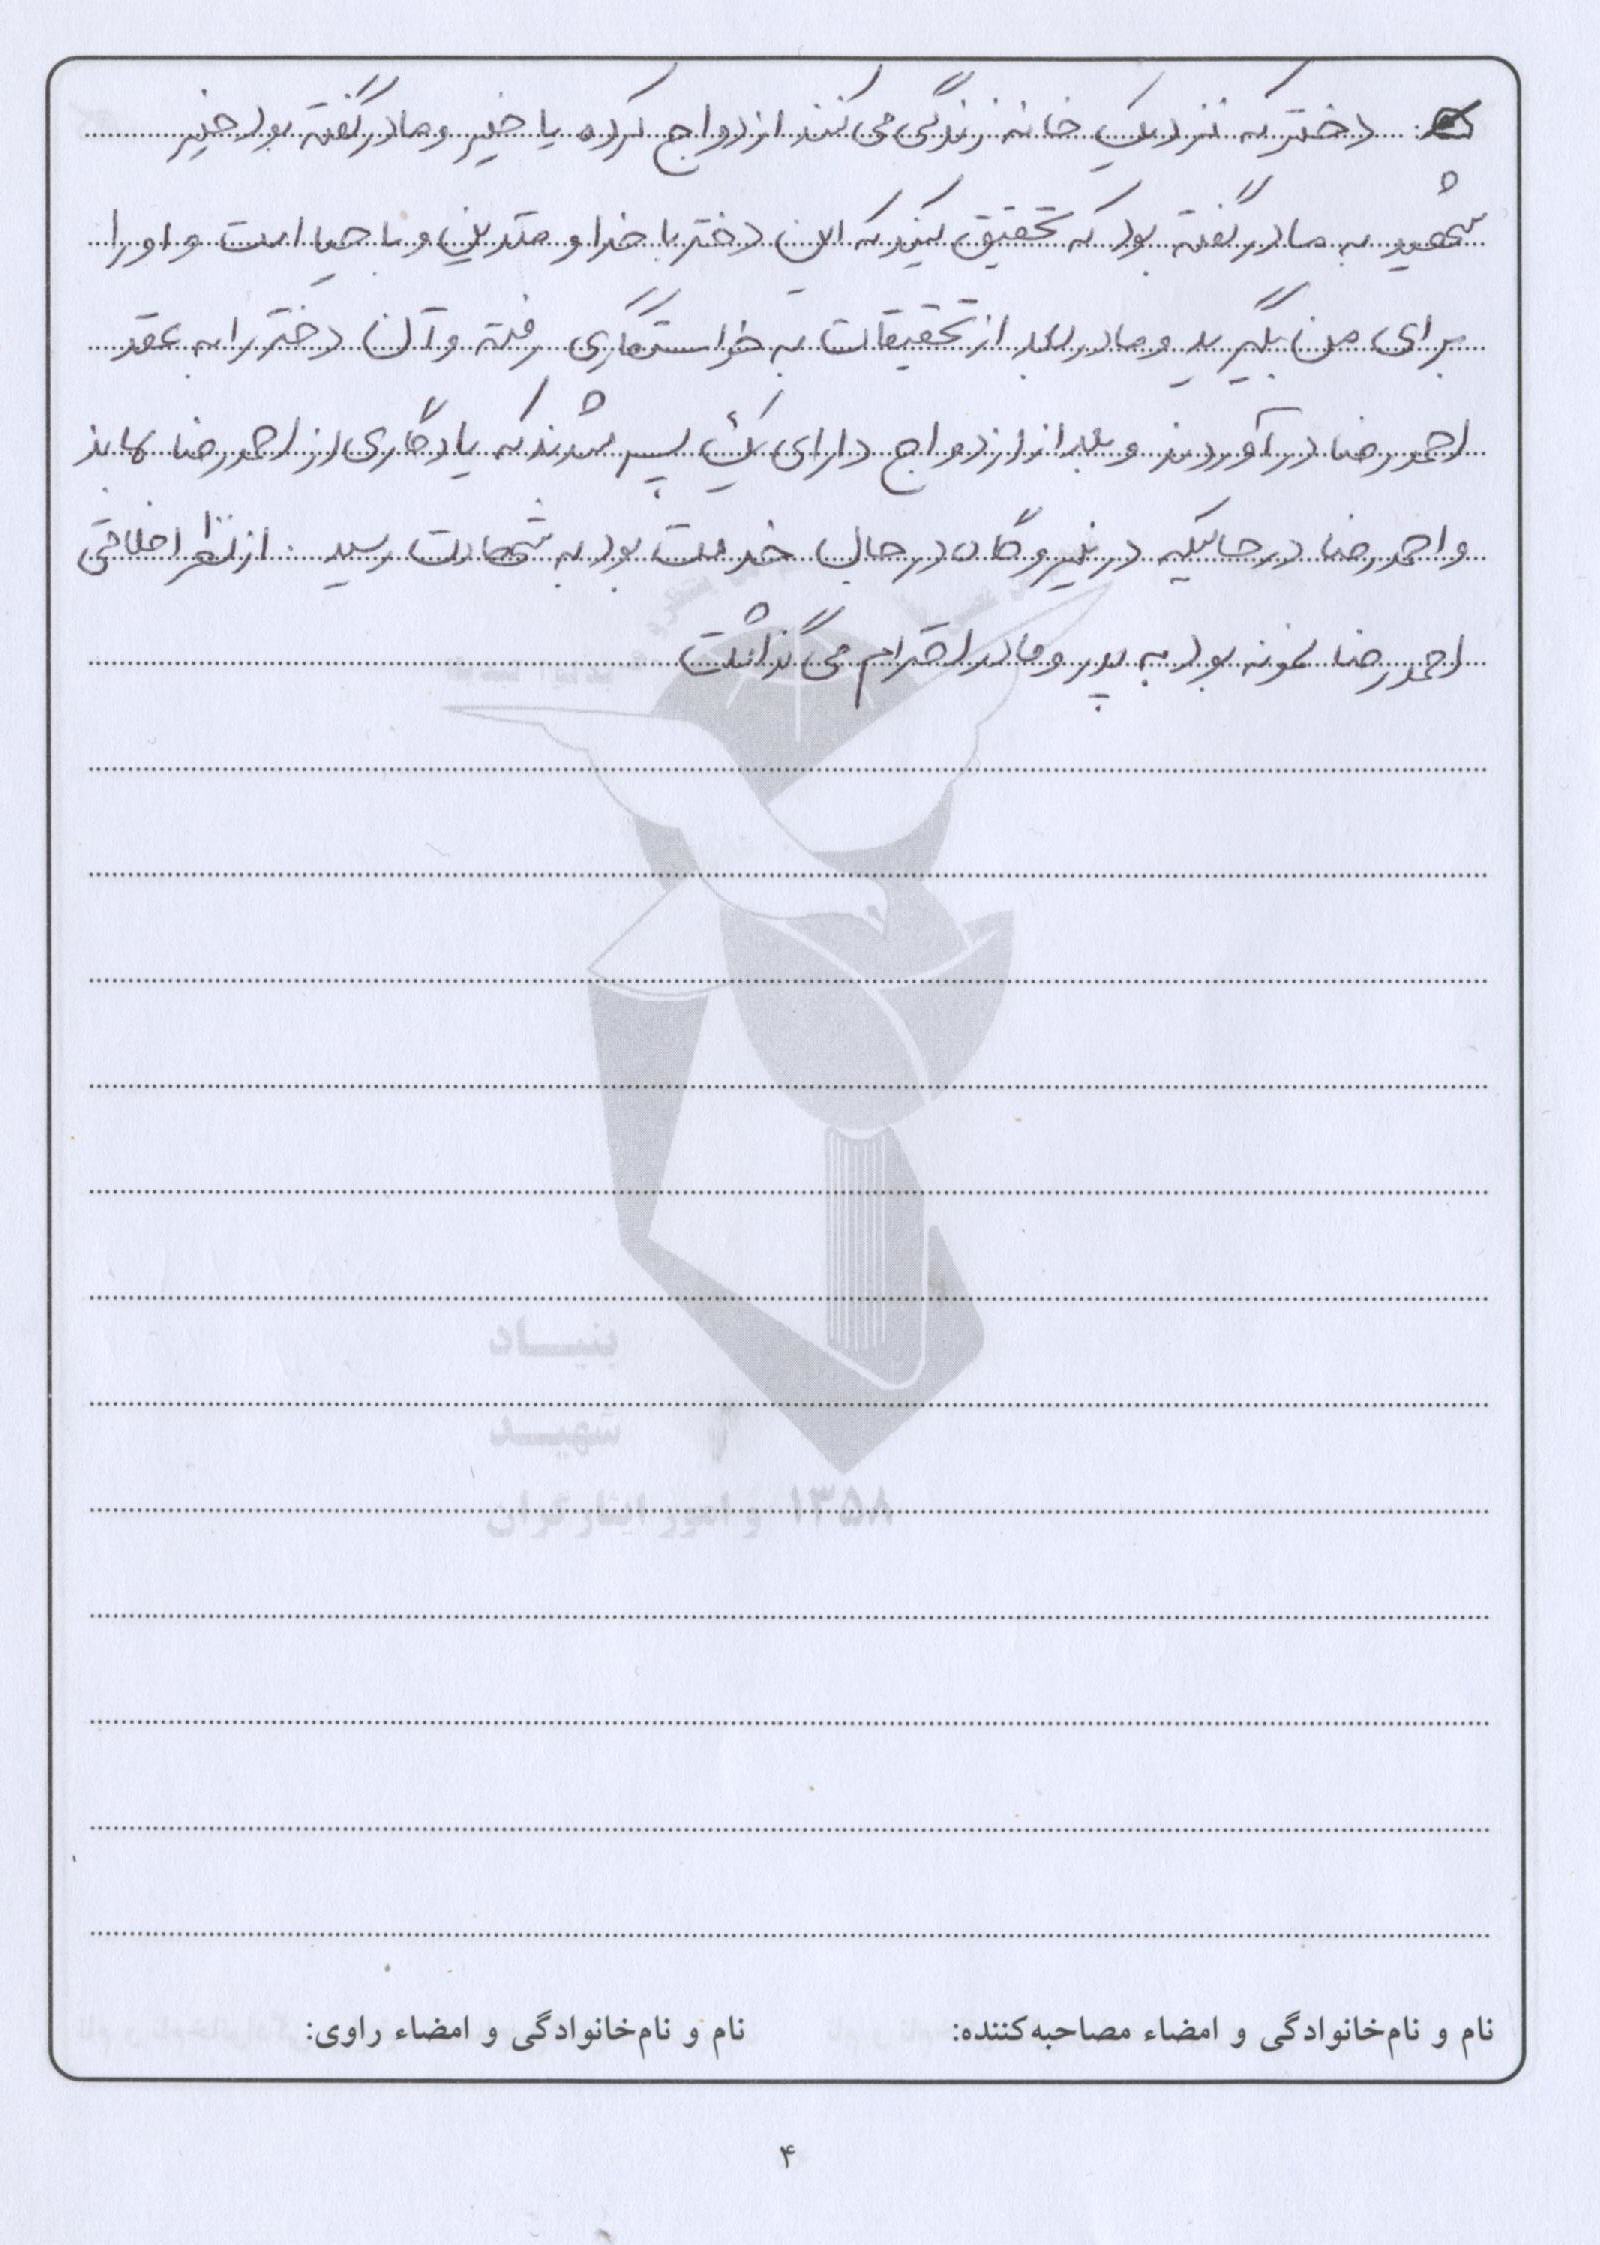 دختر که نزدیک خانه زندگی می کنند ازدواج کرده یا خیر و مادر گفته بود خیر
شهید به مادر گفته بود که تحقیق کنید که این دختر با خدا و متدین و با حیا است و او را
برای من بگیرید و مادر بعد از تحقیقات به خواستگاری رفته و آن دختر را به عقد
احمدرضا درآوردند و بعد از ازدواج دارای یک پسر شدند که یادگاری از احمدرضا بماند
و احمدرضا در حالیکه در نیروگاه در حال خدمت بود به شهادت رسید. از نظر اخلاقی
احمدرضا نمونه بود به پدر و مادر احترام می گذاشت
بنیاد
شهید
۱۳۵۸ و امور ایثارگران
نام و نام‌خانوادگی و امضاء مصاحبه‌کننده: نام و نام‌خانوادگی و امضاء راوی:
۴